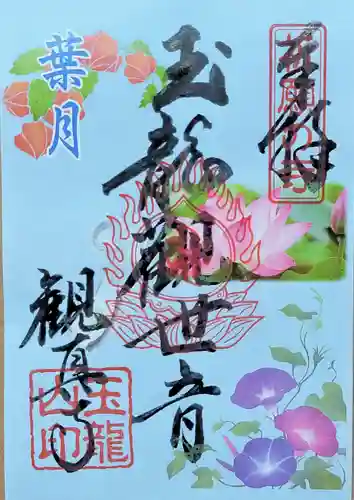 奉拝
玉龍觀世音
葉月
觀真寺
玉龍
山印